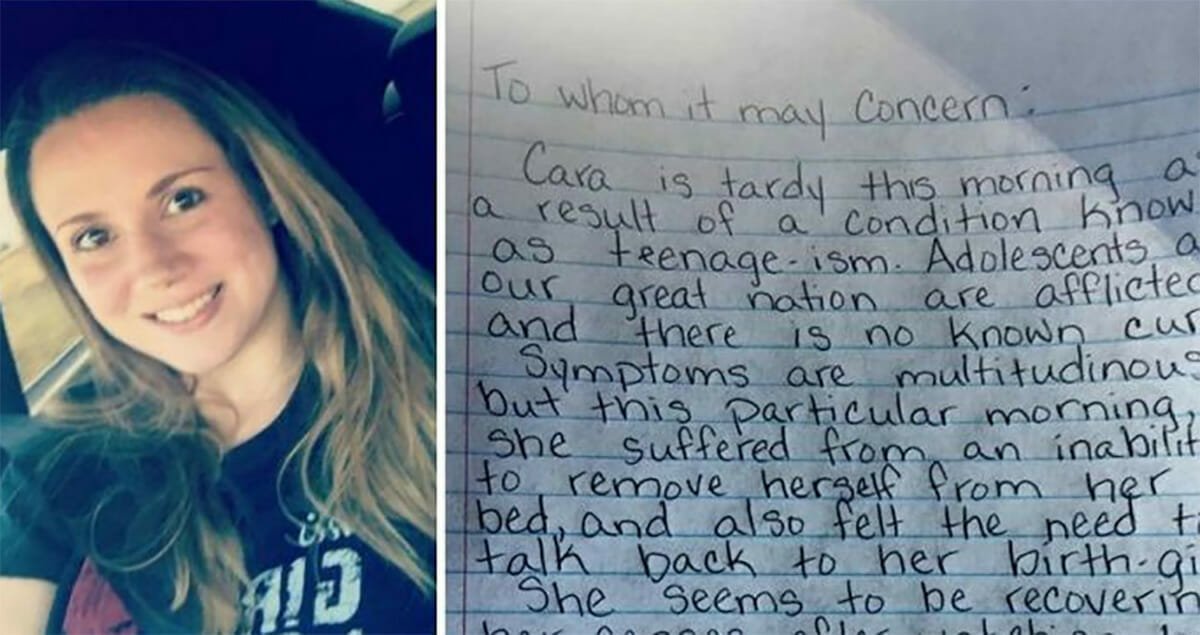 To whom it may Concern:
Cara is tardy this morning a
a result of a condition know
as teenage-ism. Adolescents a
our great nation are afflicted
and there is no known cur
Symptoms are multitudinous
but this particular morning,
she suffered from an inabilit
to remove herself from her
bed, and also felt the need t
talk back to her birth-gi
She seems to be recoverin